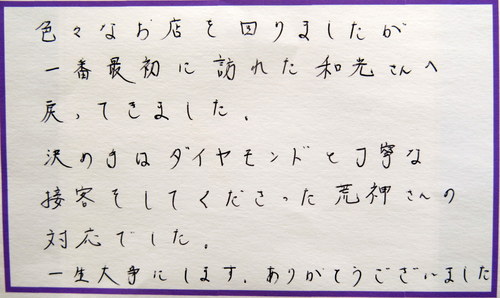 色々なお店を回りましたが
一番最初に訪れた和光さんへ
戻ってきました。
決め手はダイヤモンドと丁寧な
接客をしてくださった荒神さんの
対応でした。
一生大事にします。ありがとうございました